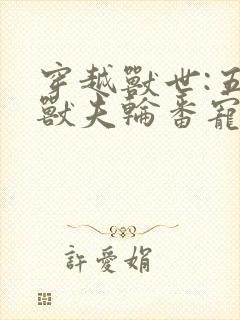 穿越獸世:五
獸夫輪番寵
許愛娟